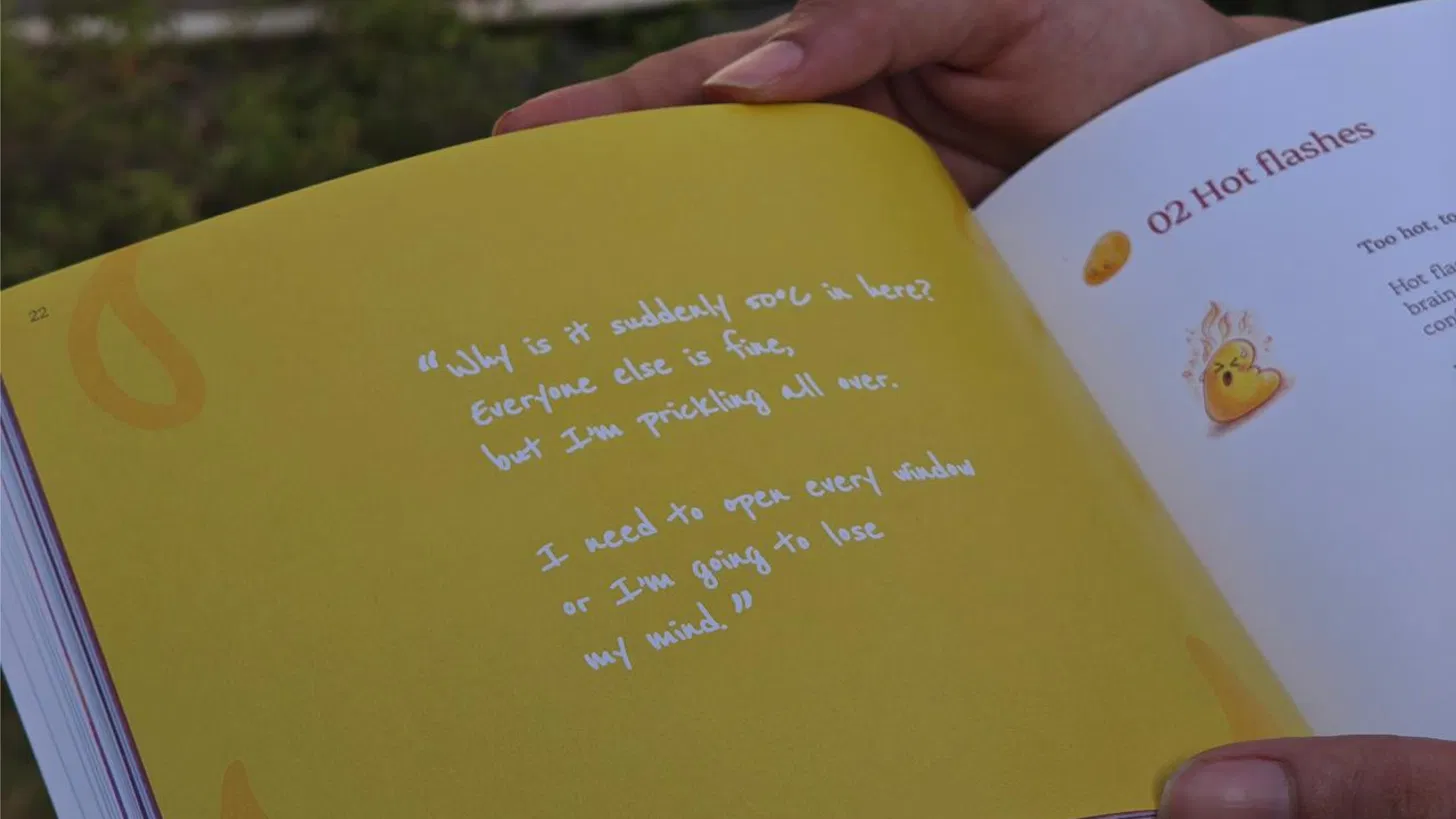 22
“Why is it suddenly 50°C in here?
Everyone else is fine,
but I'm prickling all over.
I need to open every window
or I'm going to lose
my mind.”
02 Hot flashes
Too hot,
Hot
brain